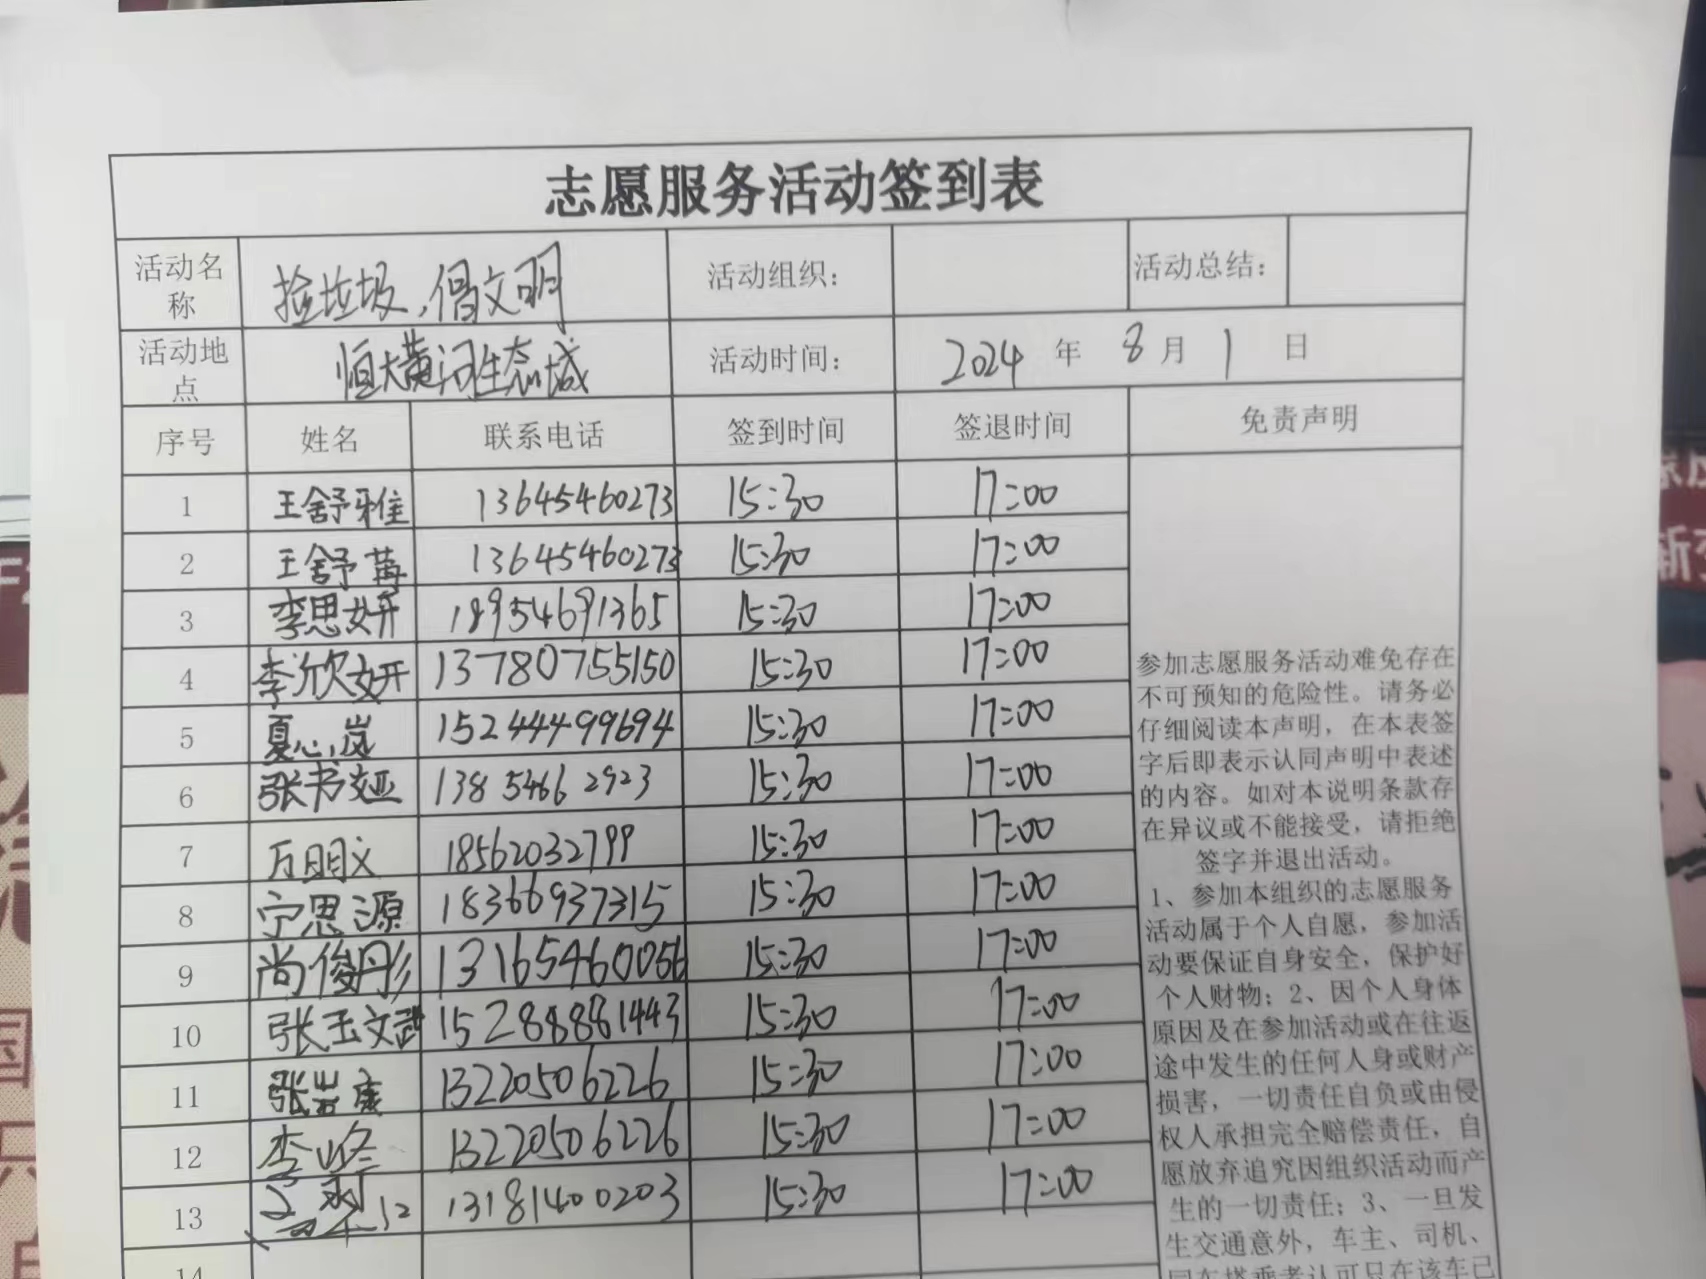 志愿服务活动签到表
活动名称 捡垃圾,倡文明 活动组织: 活动总结:
活动地点 恒大黄河生态城 活动时间: 2024 年 8 月 1 日
序号 姓名 联系电话 签到时间 签退时间 免责声明
1 王舒雅 13645460273 15:30 17:00
2 王舒苒 13645460273 15:30 17:00
3 李思妍 18954691365 15:30 17:00
4 李欣妍 13780755150 15:30 17:00
5 夏心岚 15244499694 15:30 17:00
6 张书娅 13854662923 15:30 17:00
7 万明义 18562032799 15:30 17:00
8 宁思源 18366937315 15:30 17:00
9 尚俊彤 13165460056 15:30 17:00
10 张玉文 15288881443 15:30 17:00
11 张 13220506226 15:30 17:00
12 李峰 13220506226 15:30 17:00
13 13181400203 15:30 17:00
14
参加志愿服务活动难免存在
不可预知的危险性。请务必
仔细阅读本声明,在本表签
字后即表示认同声明中表述
的内容。如对本说明条款存
在异议或不能接受,请拒绝
签字并退出活动。
1、参加本组织的志愿服务
活动属于个人自愿,参加活
动要保证自身安全,保护好
个人财物;2、因个人身体
原因及在参加活动或在往返
途中发生的任何人身或财产
损害,一切责任自负或由侵
权人承担完全赔偿责任,自
愿放弃追究因组织活动而产
生的一切责任;3、一旦发
生交通意外,车主、司机、
同车搭乘者认可只在该车已